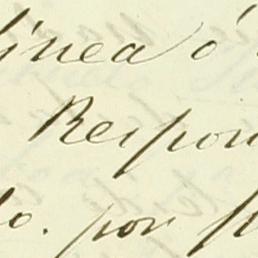 linea ó
Respon
do. por